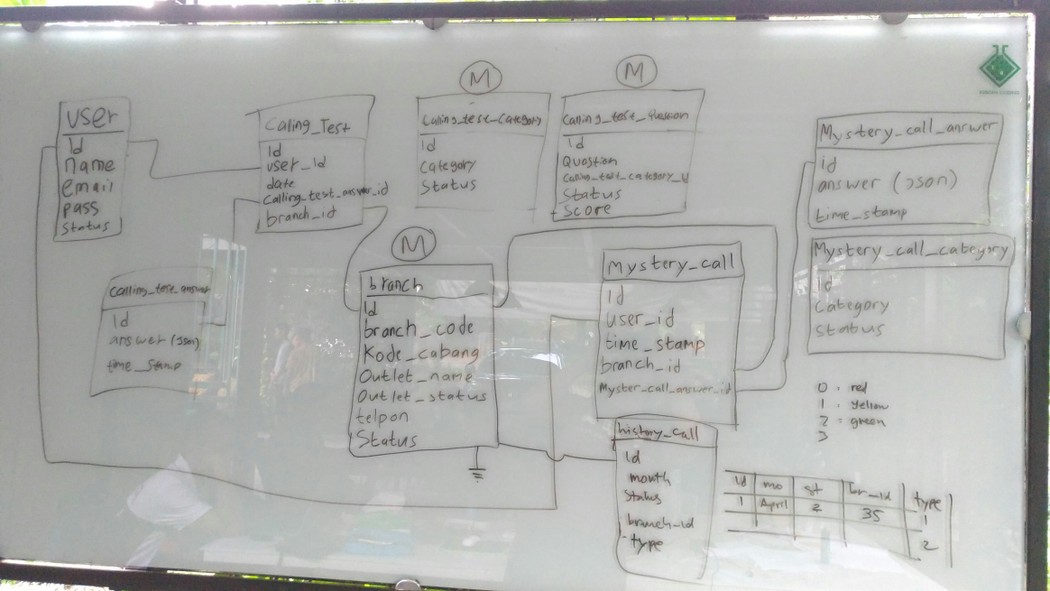 user
Id
name
email
pass
Status
Caling_Test
Id
user_id
date
calling_test_answer_id
branch_id
M
Caling_test_Category
id
category
Status
M
Calling_test_Question
id
Question
Calling_test_category_id
Status
Score
Mystery_call_answer
id
answer (Json)
time_stamp
Mystery_call_category
id
Category
Status
Calling_test_answer
Id
answer (Json)
time_stamp
M
branch
Id
branch_code
Kode_cabang
Outlet_name
Outlet_status
telpon
Status
Mystery_call
Id
user_id
time_stamp
branch_id
Myster_call_answer_id
history_call
Id
month
Status
branch_id
type
0 . red
1 . yellow
2 = green
3
Id mo st br_id type
1 April 2 35 1
2